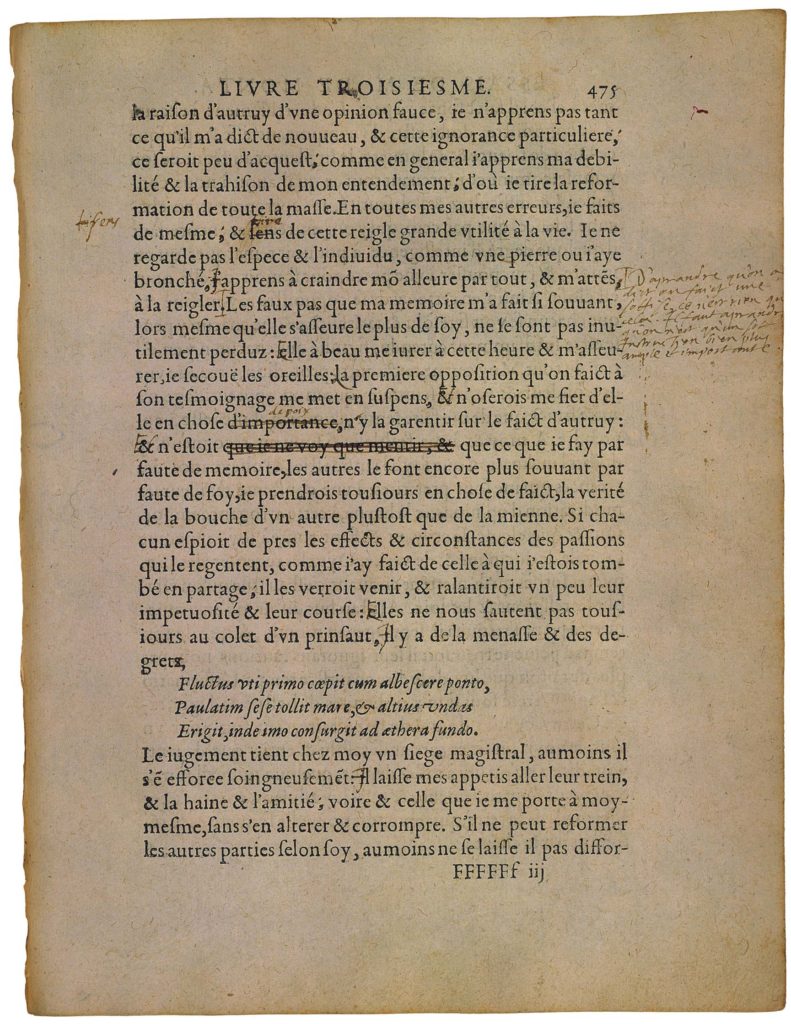 LIVRE TROISIESME. 475
la raiſon d'autruy d'vne opinion fauce, ie n'apprens pas tant
ce qu'il m'a dict de nouueau, & cette ignorance particuliere,
ce ſeroit peu d'acqueſt, comme en general i'apprens ma debi-
lité & la trahiſon de mon entendement; d'où ie tire la refor-
mation de toute la maſſe. En toutes mes autres erreurs, ie faits
de meſme; & ſens de cette reigle grande vtilité à la vie. Ie ne
regarde pas l'eſpece & l'indiuidu, comme vne pierre ou i'aye
bronché, i'apprens à craindre mō alleure par tout, & m'attēs
à la reigler. Les faux pas que ma memoire m'a fait ſi ſouuant,
lors meſme qu'elle s'aſſeure le plus de ſoy, ne ſe ſont pas inu-
tilement perduz: Elle à beau me iurer à cette heure & m'aſſeu-
rer, ie ſecouë les oreilles: la premiere oppoſition qu'on faict à
ſon teſmoignage me met en ſuſpens, & n'oſerois me fier d'el-
de pois
le en choſe d'importance, n'y la garentir ſur le faict d'autruy:
& n'eſtoit que ie ne voy que mentir, & que ce que ie fay par
faute de memoire, les autres le font encore plus ſouuant par
faute de foy, ie prendrois touſiours en choſe de faict, la verité
de la bouche d'vn autre pluſtoſt que de la mienne. Si cha-
cun eſpioit de pres les effects & circonſtances des paſſions
qui le regentent, comme i'ay faict de celle à qui i'eſtois tom-
bé en partage; il les verroit venir, & ralantiroit vn peu leur
impetuoſité & leur courſe: Elles ne nous ſautent pas touſ-
iours au colet d'vn prinſaut, Il y a de la menaſſe & des de-
gretz,
Fluctus vti primo cœpit cum albeſcere ponto,
Paulatim ſeſe tollit mare, & altius vndas
Erigit, inde imo conſurgit ad æthera fundo.
Le iugement tient chez moy vn ſiege magiſtral, aumoins il
s'ē efforce ſoingneuſemēt: Il laiſſe mes appetis aller leur trein,
& la haine & l'amitié; voire & celle que ie me porte à moy-
meſme, ſans s'en alterer & corrompre. S'il ne peut reformer
les autres parties ſelon ſoy, aumoins ne ſe laiſſe il pas diffor-
FFFFFf iij
D'aprandre qu'on a
dict ou faict une
sottise, ce n'est rien que
cela: il faut aprandre
qu'on n'est qu'un sot
Instruction bien plus
ample et importante